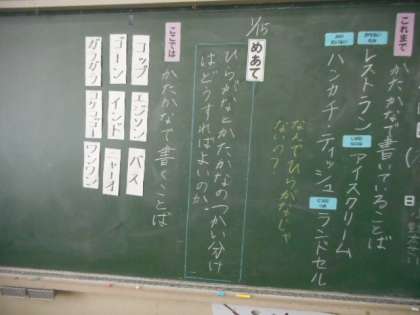 これまで
かたかなで書いていることば
レストラン アイスクリーム
ハンカチ・ティッシュ ランドセル
なんでひらがなじゃ
ない?
1/15
めあて
ひらがなとかたかなのつかい分け
はどうすればよいのか。
ここでは
かたかなで書くことば
コップ エジソン バス
ゴーン インド ニャーオ
ガラガラ コケコッコー ワンワン
日